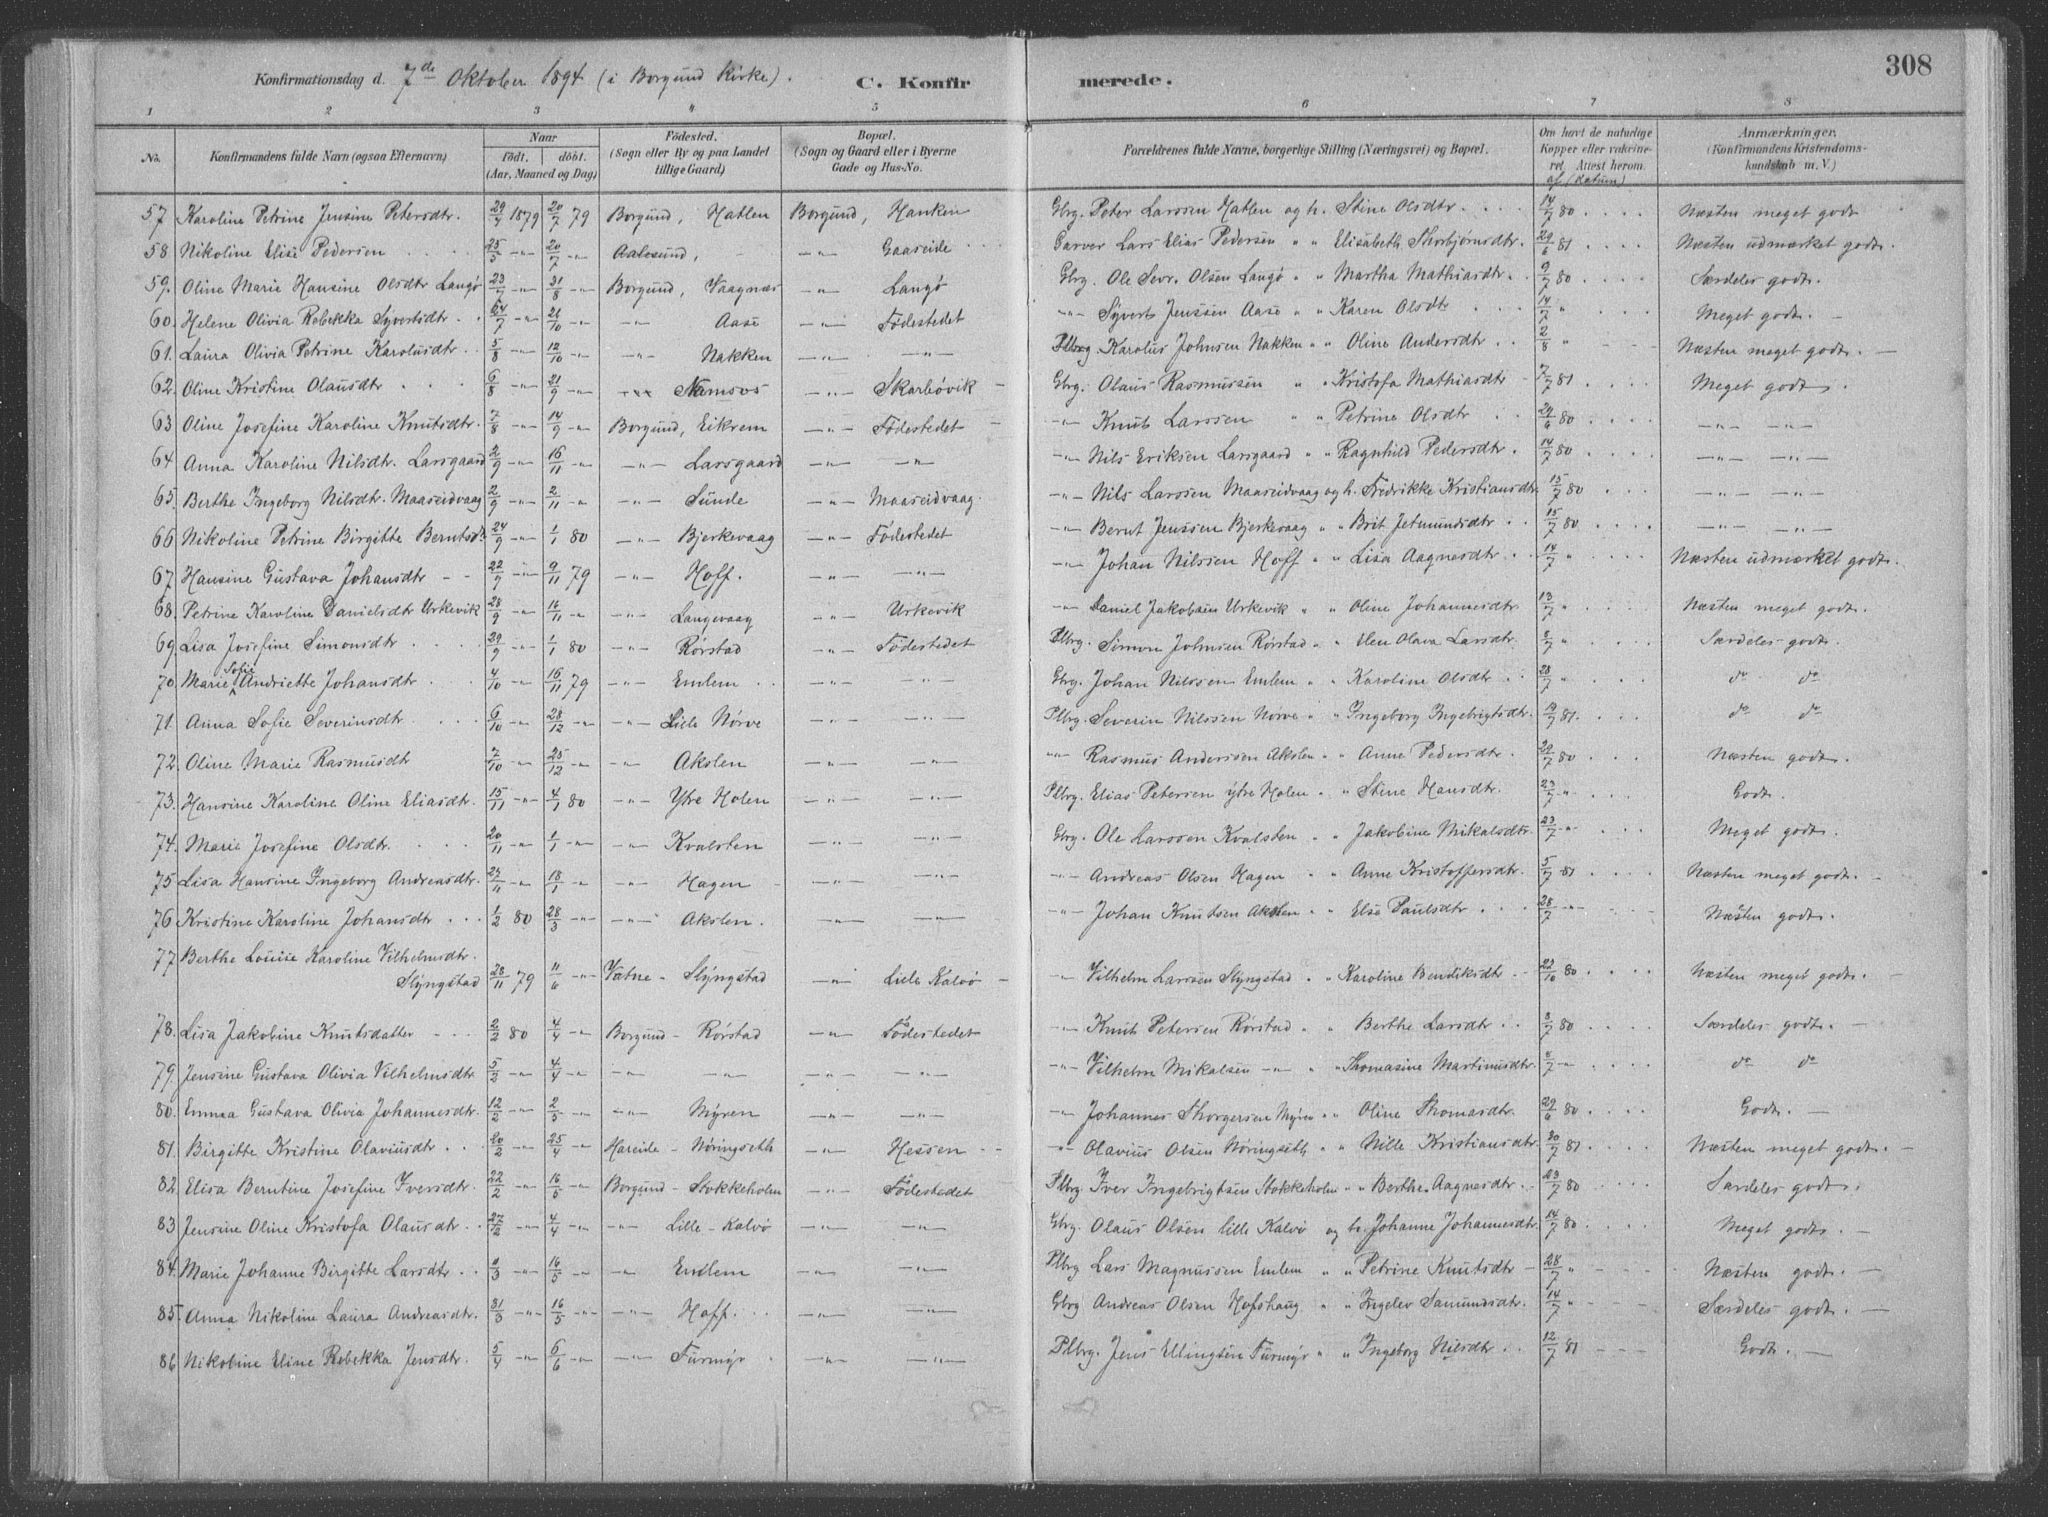 308
Konfirmationsdag d. 7de Oktober 1894 (i Borgund Kirke). C. Konfirmerede.
1 2 3 4 5 6 7 8
No. Konfirmandens fulde Navn (ogsaa Efternavn) Naar født. døbt. (Aar, Maaned og Dag) Fødested. (Sogn eller By og paa Landet tillige Gaard) Bopæl. (Sogn og Gaard eller i Byerne Gade og Hus-No. Forældrenes fulde Navne, borgerlige Stilling (Næringsvei) og Bopæl. Om havt de naturlige Kopper eller vakcineret. Attest herom. af (datum) Anmærkninger. (Konfirmandens Kristendomskundskab m. V.)
57 Karoline Petrine Jensine Petersdtr. 29/4 1879 20/7 79 Borgund, Hatlen Borgund, Hanken Gbrg. Peter Larssen Hatlen og h. Stine Olsdtr. 14/7 80 Næsten meget godt
58 Nikoline Elise Pedersen 25/5 -"- 20/7 -"- Aalesund, -"- Gaaseide Garver Lars Elias Pedersen " " Elisabeth Thorbjørnsdtr. 29/6 81 Næsten udmærket godt.
59. Oline Marie Hansine Olsdtr Langø 23/7 -"- 31/8 -"- Borgund, Vaagnæs -"- Langø Gbrg. Ole Sevr. Olsen Langø " " Martha Mathiasdtr. 9/7 80 Særdeles godt.
60. Helene Olivia Rebekka Syvertsdtr. 24/7 -"- 26/10 -"- -"- Aase -"- Fødestedet -"- Syvert Jenssen Aase " " Karen Olsdtr 14/7 " Meget godt.
61. Laura Olivia Petrine Karolusdtr. 5/8 -"- 12/10 -"- -"- Nakken -"- -"- Plbrg Karolus Johnsen Nakken " " Oline Andersdtr. 2/8 " Næsten meget godt.
62. Oline Kristine Olausdtr 6/8 -"- 21/9 -"- Namsos -"- Skarbøvik Gbrg. Olaus Rasmussen " " Kristofa Mathiasdtr 7/7 81 Meget godt.
63 Oline Josefine Karoline Knutsdtr. 7/8 -"- 14/9 -"- Borgund, Eikrem -"- Fødestedet -"- Knut Larssen " " Petrine Olsdtr 24/6 80 -"- -"-
64 Anna Karoline Nilsdtr. Larsgaard 2/9 -"- 16/11 -"- -"- Larsgaard -"- -"- -"- Nils Eriksen Larsgaard " " Ragnhild Pedersdtr. 14/7 80 -"- -"-
65. Berthe Ingeborg Nilsdtr. Maaseidvaag 2/9 -"- 2/11 " -"- Sunde -"- Maaseidvaag. -"- Nils Larssen Maaseidvaag og h. Fredrikke Kristiansdtr. 15/7 80 -"- -"-
66 Nikoline Petrine Birgitte Berntsd. 24/9 -"- 1/1 80 -"- Bjerkevaag -"- Fødestedet -"- Bernt Jenssen Bjerkvaag " " Brit Jetmundsdtr 15/7 80 -"- -"-
67 Hansine Gustava Johansdtr 22/9 -"- 9/11 79 -"- Hoff. -"- -"- -"- Johan Nilssen Hoff " " Lisa Aagnesdtr 14/7 " Næsten udmærket godt.
68. Petrine Karoline Danielsdtr Urkevik 28/9 -"- 16/11 -"- -"- Langevaag -"- Urkevik -"- Daniel Jakobsen Urkevik " " Oline Johannesdtr. 13/7 " Næsten meget godt.
69 Lisa Josefine Simonsdtr. 29/9 -"- 1/1 80 -"- Rørstad -"- Fødestedet Plbrg. Simon Johnsen Rørstad " " Elen Olava Larsdtr. 8/7 " Særdeles godt.
70. Marie Sofie Andriette Johansdtr 4/10 -"- 16/11 79 -"- Emlem -"- -"- Gbrg. Johan Nilssen Emlem " " Karoline Olsdtr 28/7 " do do
71. Anna Sofie Severinsdtr 6/10 -"- 28/12 -"- -"- Lille Nørve -"- -"- Plbrg. Severin Nilssen Nørve " " Ingeborg Ingebrigtsdtr. 19/7 81. do do
72. Oline Marie Rasmusdtr 7/10 -"- 25/12 -"- -"- Akslen -"- -"- -"- Rasmus Anderssen Akslen " " Anne Pedersdtr. 29/7 80 Næsten godt.
73. Hansine Karoline Oline Eliasdtr. 15/11 -"- 4/1 80 -"- Ytre Holen -"- -"- Plbrg. Elias Petersen ytre Holen " " Stine Hansdtr. 23/7 -"- Godt.
74. Marie Josefine Olsdtr. 20/11 -"- 1/1 -"- -"- Kvalsten -"- -"- Gbrg. Ole Larssen Kvalsten " " Jakobine Mikalsdtr. 23/7 -"- Meget godt.
75 Lisa Hansine Ingeborg Andreasdtr. 27/11 -"- 18/1 -"- -"- Hagen -"- -"- -"- Andreas Olsen Hagen " " Anne Kristoffersdtr. 5/7 81 Næsten meget godt.
76 Kristine Karoline Johansdtr 1/2 80 28/3 -"- -"- Akslen. -"- -"- -"- Johan Knutsen Akslen " " Else Paulsdtr 28/7 -"- Næsten godt.
77 Berthe Louise Karoline Vilhelmsdtr.
Slyngstad 28/11 79 11/6 -"- Vatne - Slyngstad -"- Lille Kalvø -"- Vilhelm Larssen Slyngstad " " Karoline Bendiksdtr 22/10 80 Næsten meget godt.
78. Lisa Jakobine Knutsdatter 2/2 80 4/4 -"- Borgund - Rørstad -"- Fødestedet -"- Knut Petersen Rørstad " " Berthe Larsdtr 8/7 80 Særdeles godt.
79. Jensine Gustava Olivia Vilhelmsdtr 5/2 -"- 4/4 -"- -"- -"- -"- -"- -"- Vilhelm Mikalsen -"- " " Thomasine Martinusdtr. 8/7 -"- do do
80. Emma Gustava Olivia Johannesdtr. 12/2 -"- 2/5 -"- -"- Myren -"- -"- -"- Johannes Thorgersen Myren " " Oline Thomasdtr. 29/6 80 Godt.
81. Birgitte Kristine Olaviusdtr 20/2 -"- 25/4 -"- Hareide - Nøringseth -"- Hessen -"- Olavius Olsen Nøringseth " " Nille Kristiansdtr. 20/7 81 Næsten meget godt.
82. Elisa Berntine Josefine Iversdtr. 22/2 -"- 16/5 -"- Borgund - Stokkeholm -"- Fødestedet Plbrg. Iver Ingebrigtsen Stokkeholm " " Berthe Aagnesdtr. 23/7 80 Særdeles godt.
83 Jensine Oline Kristofa Olausdtr. 27/2 -"- 4/4 -"- -"- Lille-Kalvø -"- -"- Gbrg. Olaus Olsen lille Kalvø og h. Johanne Johannesdtr. 14/7 80 Meget godt.
84. Marie Johanne Birgitte Larsdtr. -"- 16/5 -"- -"- Emlem -"- -"- Plbrg Lars Magnussen Emlem " " Petrine Knutsdtr 28/7 " Næsten godt.
85. Anna Nikoline Laura Andreasdtr. 31/3 -"- 16/5 -"- -"- Hoff. -"- -"- Gbrg Andreas Olsen Hofshaug " " Ingelev Samundsdtr. 14/7 " Særdeles godt.
86 Nikoline Eline Rebekka Jensdtr. 5/4 -"- 6/6 -"- -"- Furmyr -"- -"- Plbrg. Jens Ellingsen Furmyr " " Ingeborg Nilsdtr 12/7 81 Godt.